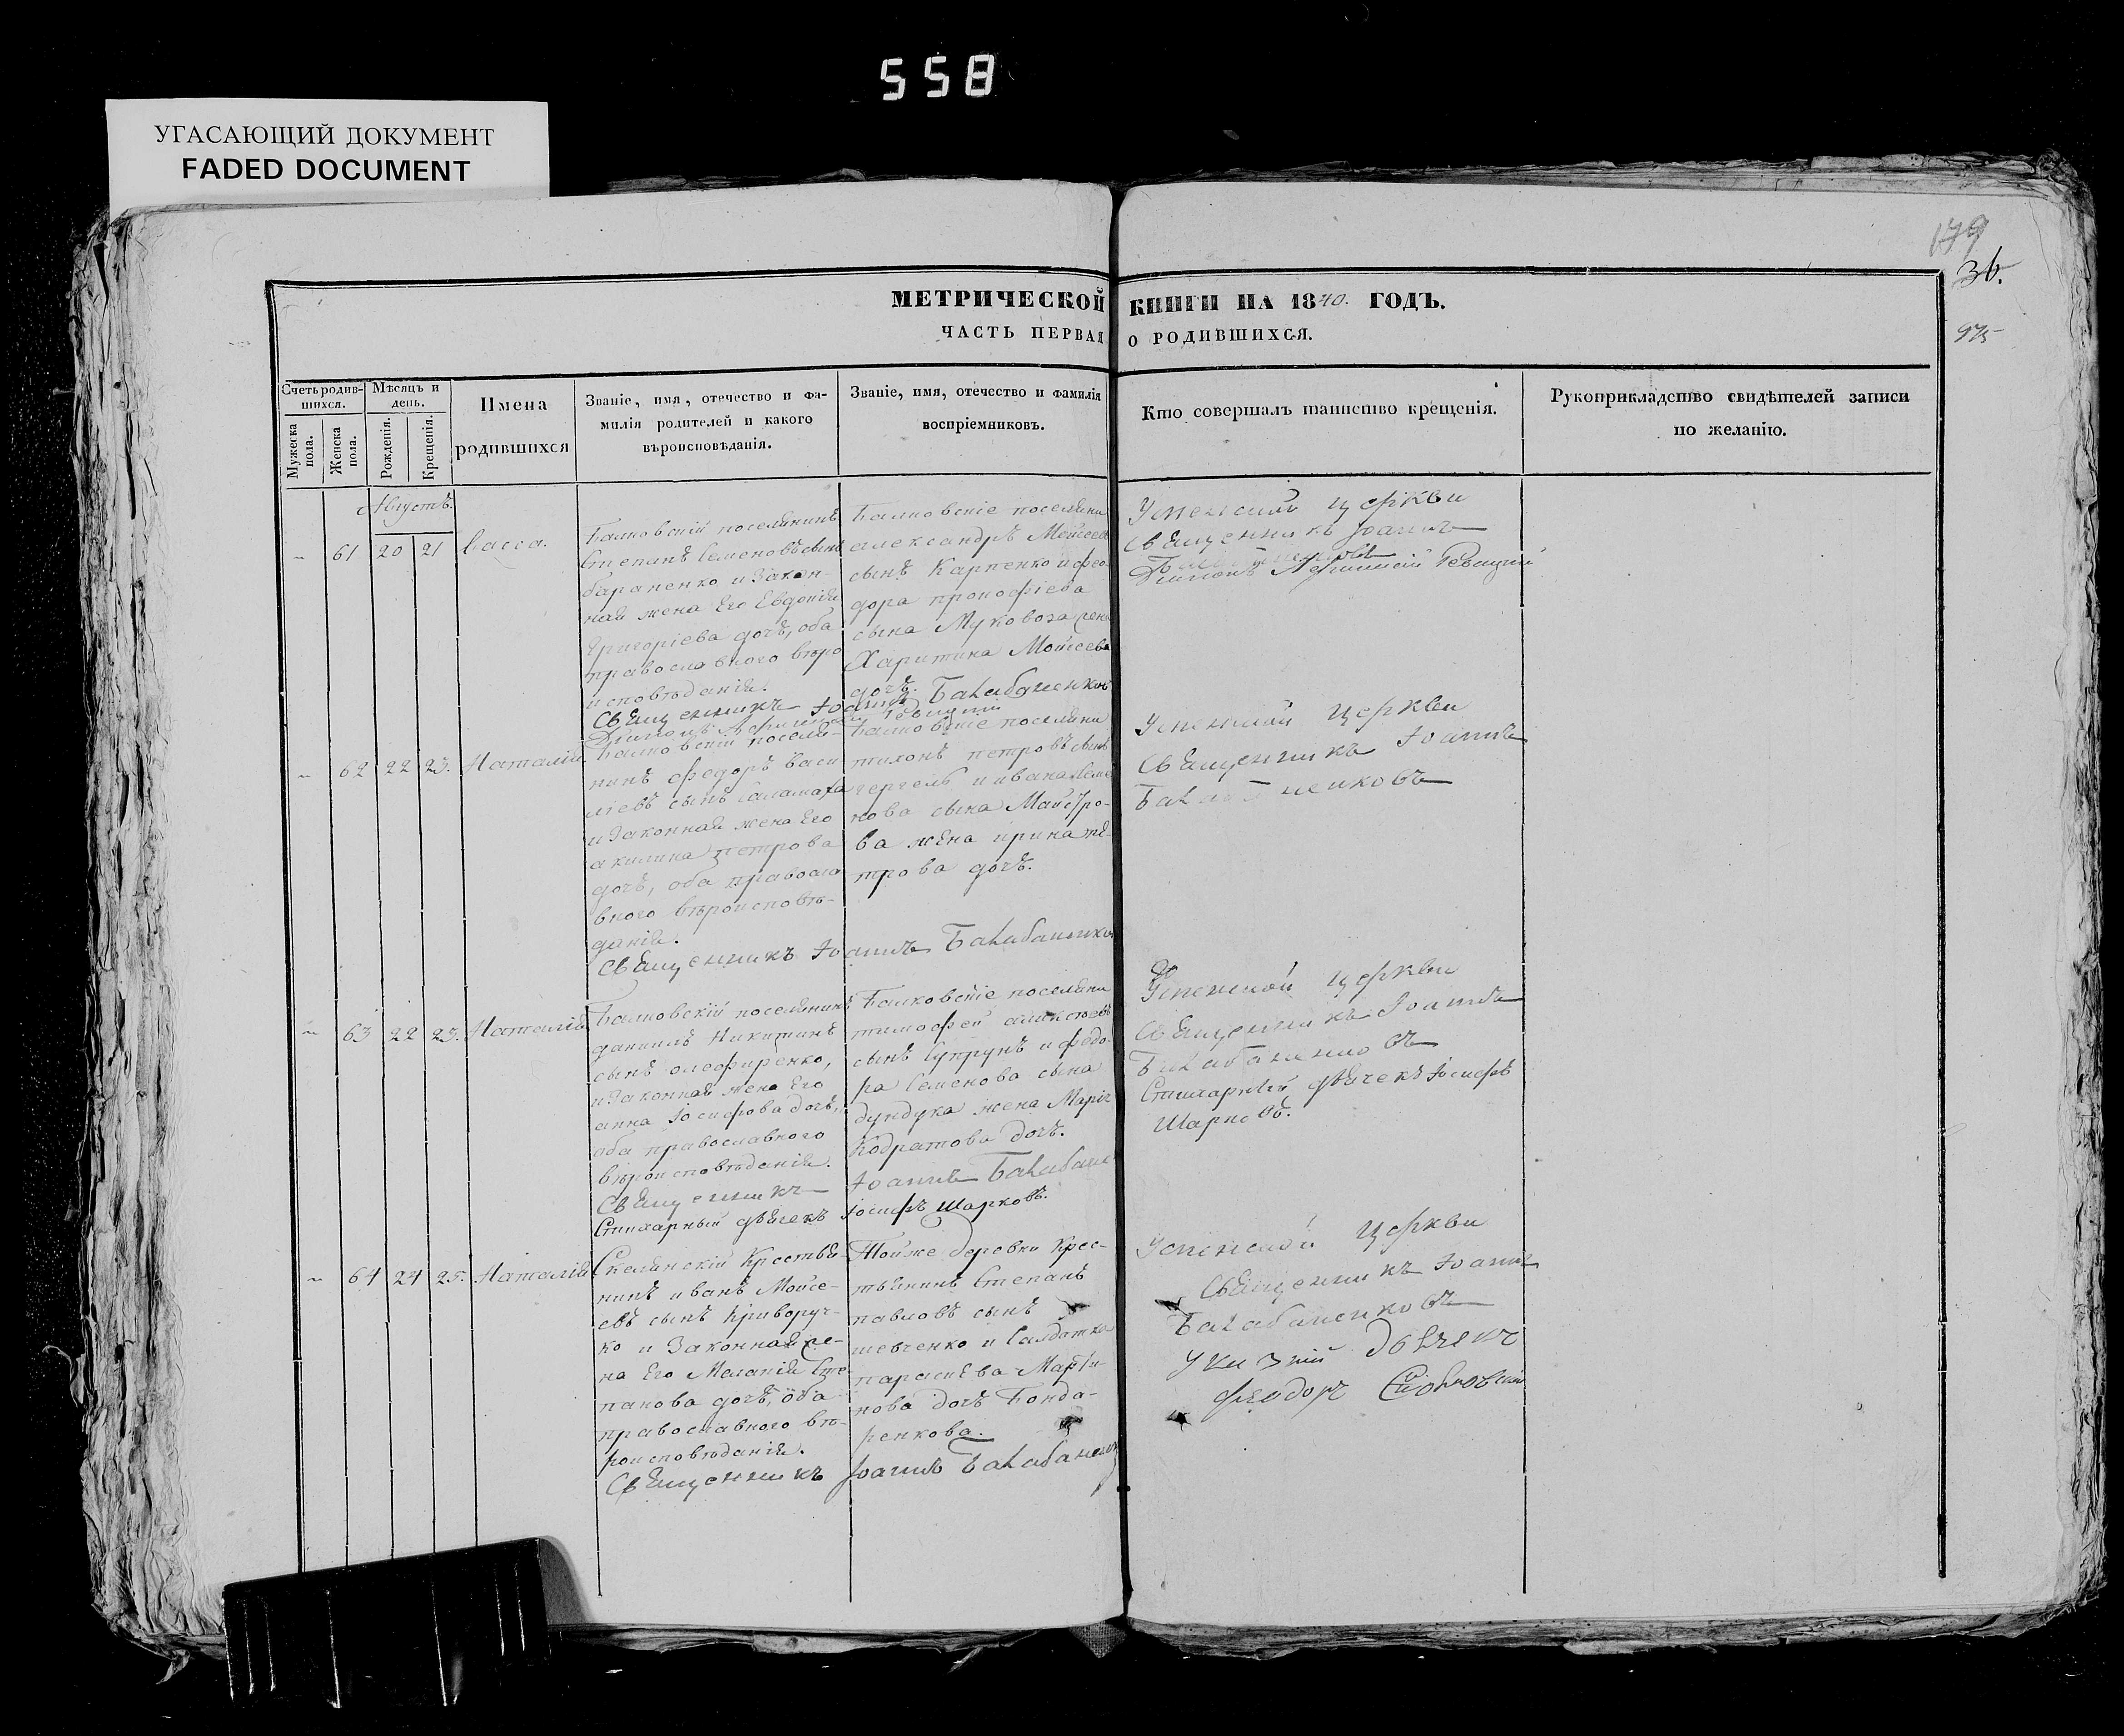 558
УГАСАЮЩИЙ ДОКУМЕНТ
FADED DOCUMENT
179
36.
975
МЕТРИЧЕСКОЙ КНИГИ НА 1840. ГОДЪ.
ЧАСТЬ ПЕРВАЯ О РОДИВШИХСЯ.
Счетъ родив-
шихся.
Мужеска пола.
Женска пола.
Мѣсяцъ и
день.
Рожденія.
Крещенія.
Имена
родившихся
Званіе, имя, отечество и фа-
милія родителей и какого
вѣроисповѣданія.
Званіе, имя, отечество и фамилія
воспріемниковъ.
Кто совершалъ таинство крещенія.
Рукоприкладство свидѣтелей записи
по желанію.
Августъ.
61 20 21 Васса.
Балковскій поселянинъ
Степанъ Семеновъ сынъ
бараненко и Закон-
ная жена Его Евдокія
Григоріева дочь, оба
православного вѣро
исповѣданія.
Священникъ Іоаннъ Балабаненковъ
Балковскіе поселяни
александръ Мойсеевъ
сынъ Карпенко и фео
дора прокофіева
сына Муковоза жена
Харитина Мойсеева
дочь.
Успенской церкви
Священникъ Іоаннъ
62 22 23. Наталія
Балковскій поселя-
нинъ федоръ васи
ліевъ сынъ Саламаха
и Законная жена Его
акилина петрова
дочь, оба правосла
вного вѣроисповѣ-
данія.
Священникъ Іоаннъ Балабаненко
Балковскіе поселяни
тихонъ петровъ сынъ
чергель и ивана Семе
нова сына Майстро-
ва жена ирина пе-
трова дочь.
Успенской церкви
Священникъ Іоаннъ
Балабаненковъ
63 22 23. Наталія
Балковскій поселянинъ
даниилъ Никитинъ
сынъ олефиренко,
и Законная жена Его
анна Іосифова дочь,
оба православного
вѣроисповѣданія.
Священникъ Іоаннъ Балабане
Стихарный дьячекъ Іосифъ Шарковъ.
Балковскіе поселяни
тимофей алексѣевъ
сынъ Супрунъ и федо
ра Семенова сына
дундука жена Марія
Кодратова дочь.
Успенской церкви
Священникъ Іоаннъ
Балабаненковъ
Стихарный дьячекъ Іосифъ
Шарковъ.
64 24 25. Наталія
Скелянскій Крестья-
нинъ иванъ Мойсе-
евъ сынъ Криворуч-
ко и Законная же-
на Его Меланія Сте-
панова дочь, оба
православного вѣ-
роисповѣданія.
Священникъ Іоаннъ Балабаненко
Той же деревни Крес-
тьянинъ Степанъ
павловъ сынъ
шевченко и Салдатка
параскева Марти-
нова дочь Бонда-
ренкова.
Успенской церкви
Священникъ Іоаннъ
Балабаненковъ
Указній дьячекъ
феодоръ